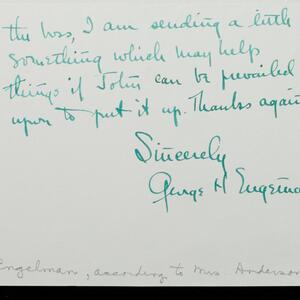 this loss, I am sending a little
something which may help
things if John can be prevailed
upon to put it up. Thanks again
Sincerely
George H Engelman
Engelman, according to Mrs Anderson